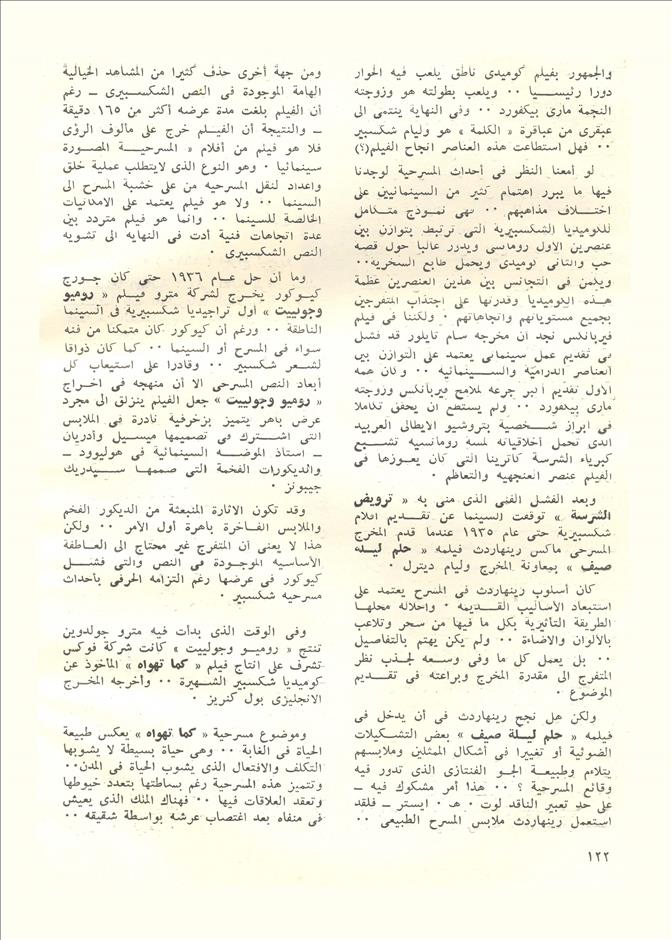 والجمهور بفيلم كوميدى ناطق يلعب فيه الحوار
دورا رئيسـيا ٠٠ ويلعب بطولته هو وزوجته
النجمة مارى بيكفورد ٠٠ وفى النهاية ينتمى الى
عبقرى من عباقرة « الكلمة » هو وليام شكسبير
٠٠ فهل استطاعت هذه العناصر انجاح الفيلم(؟)
لو أمعنا النظر فى أحداث المسرحية لوجدنا
فيها ما يبرر اهتمام كثير من السينمائيين على
اختـلاف مذاهبهم ٠٠ فهى نموذج متكامل
للكوميديا الشكسبيرية التى ترتبط بتوازن بين
عنصرين الاول رومانسى ويدور غالبا حول قصة
حب والثانى كوميدى ويحمل طابع السخرية٠٠
ويكمن فى التجانس بين هذين العنصرين عظمة
هـذه الكوميديا وقدرتها على اجتذاب المتفرجين
بجميع مستوياتهم واتجاهاتهم ٠ ولكننا فى فيلم
فيربانكس نجد ان مخرجه سام تايلور قد فشل
فى تقديم عمل سينمائى يعتمد على التوازن بين
العناصر الدرامية والسـينمائية ٠٠ وكان همه
الاول تقديم أكبر جرعة لملامح فيربانكس وزوجته
مارى بيكفورد ٠٠ ولم يستطع ان يحقق تكاملا
فى ابراز شخصية بتروشيو الايطالى العربيد
الذى تحمل أخلاقياته لمسة رومانسية تشـبع
كبرياء الشرسة كاترينا التى كان يعوزها فى
الفيلم عنصر العنجهية والتعاظم ٠
وبعد الفشل الفنى الذى منى به « ترويض
الشرسة » توقفت السينما عن تقـديم افلام
شكسبيرية حتى عام ١٩٣٥ عندما قدم المخرج
المسرحى ماكس رينهاردت فيلمه « حلم ليلة
صيف » بمعاونة المخرج وليام ديترل ٠
كان أسلوب رينهاردت فى المسرح يعتمد على
استبعاد الأساليب القـديمة ٠ واحلاله محلها
الطريقة التأثيرية بكل ما فيها من سحر وتلاعب
بالألوان والاضاءة ٠٠ ولم يكن يهتم بالتفاصيل
٠٠ بل يعمل كل ما وفى وسعه لجذب نظر
المتفرج الى مقدرة المخرج وبراعته فى تقـديم
الموضوع ٠
ولكن هل نجح رينهاردت فى أن يدخل فى
فيلمه « حلم ليـلة صيف » بعض التشـكيلات
الضوئية أو تغييرا فى أشكال الممثلين وملابسهم
يتلاءم وطبيعة الجـو الفنتازى الذى تدور فيه
وقائع المسرحية ؟ ٠٠ هذا أمر مشكوك فيه ــ
على حد تعبير الناقد لوت ٠ هـ ٠ ايستر ــ فلقد
استعمل رينهاردت ملابس المسرح الطبيعى ٠٠
ومن جهة أخرى حذف كثيرا من المشاهد الخيالية
الهامة الموجودة فى النص الشكسبيرى ــ رغم
أن الفيلم بلغت مدة عرضه أكثر من ١٦٥ دقيقة
ــ والنتيجة أن الفيـلم خرج على مألوف الرؤى
فلا هو فيلم من أفلام « المسرحيـة المصـورة
سينمائيا ٠ وهو النوع الذى لايتطلب عملية خلق
واعداد لنقل المسرحيه من على خشبة المسرح الى
السينما ٠٠ ولا هو فيلم يعتمد على الامكانيات
الخالصة للسينما ٠٠ وانما هو فيلم متردد بين
عدة اتجاهات فنية أدت فى النهايه الى تشويه
النص الشكسبيرى ٠
وما أن حل عـام ١٩٣٦ حتى كان جـورج
كيـوكور يخرج لشركة مترو فيـلم « روميو
وجوليبت » أول تراجيديا شكسبيرية فى السينما
الناطقة ٠٠ ورغم أن كيوكور كان متمكنا من فنه
سواء فى المسرح أو السينما ٠٠ كما كان ذواقا
لشـعر شكسبير ٠٠ وقادرا على استيعاب كل
أبعاد النص المسرحى الا أن منهجه فى اخـراج
« روميو وجوليبت » جعل الفيلم ينزلق الى مجرد
عرض باهر يتميز بزخرفية نادرة فى الملابس
التى اشـترك فى تصميمها ميسـيل وأدريان
ــ أستاذ الموضـه السينمائية فى هوليوود ــ
والديكورات الفخمة التى صممها سـيدريك
جيبونز ٠
وقد تكون الاثارة المنبعثة من الديكور الفخم
والملابس الفـاخرة باهرة أول الأمر ٠٠ ولكن
هذا لا يعنى أن المتفرج غير محتاج الى العـاطفة
الأساسيه الموجـودة فى النص والتى فشـل
كيوكور فى عرضها رغم التزامه الحرفى بأحداث
مسرحيه شكسبير ٠
وفى الوقت الذى بدأت فيه مترو جولدوين
تنتج « روميـو وجوليبت » كانت شركة فوكس
تشرف على انتاج فيلم « كما تهواه » المأخوذ عن
كوميديا شكسبير الشـهيرة ٠٠ وأخرجه المخـرج
الانجليزى بول كنريز ٠
وموضوع مسرحية « كما تهواه » يعكس طبيعة
الحياة فى الغابة ٠٠ وهى حياة بسيطة لا يشوبها
التكلف والافتعال الذى يشوب الحياة فى المدن٠٠
وتتميز هذه المسرحية رغم بساطتها بتعدد خيوطها
وتعقد العلاقات فيها ٠٠ فهناك الملك الذى يعيش
فى منفاه بعد اغتصاب عرشه بواسطة شقيقه ٠٠
١٢٢